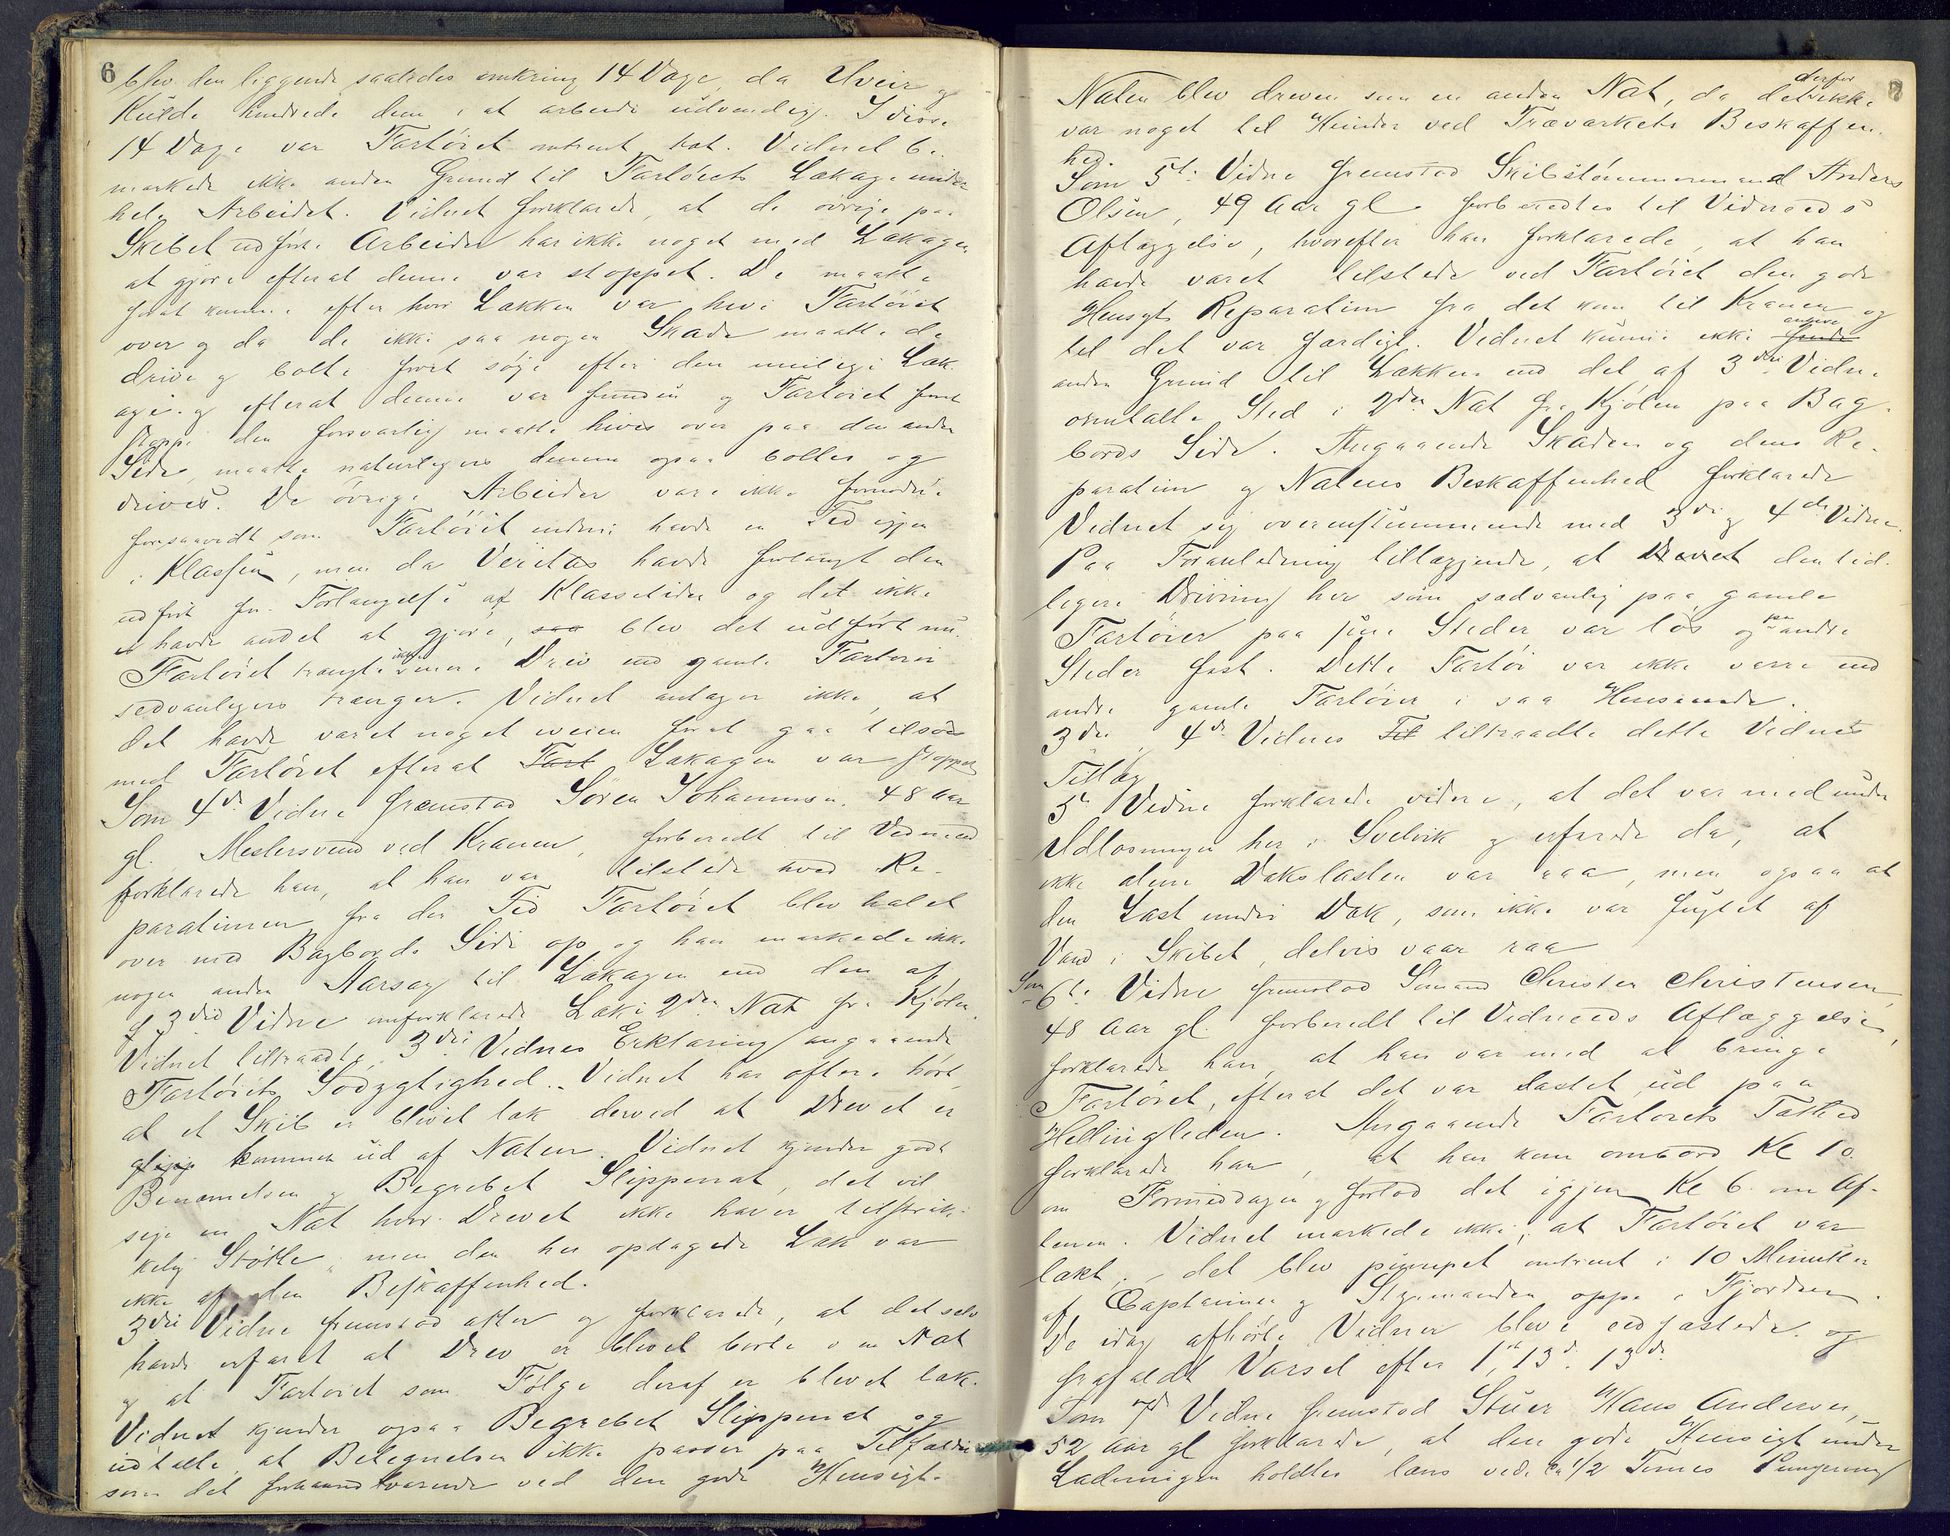 6
blev den liggende saaledes omkring 14 Dage, da Uveir og
Kulde hindrede dem i at arbeide udvendig. I disse
14 Dage var Fartöiet omtrent tæt. Vidnet be-
mærkede ikke anden Grund til Fartöiets Lækage under
hele Arbeidet. Vidnet forklarede, at de övrige paa
Skibet udförte Arbeider har ikke noget med Lækagen
at gjöre efterat denne var stoppet. De maatte
forat komme efter hvor Lækken var hive Fartöiet
over og da de ikke saa nogen Skade maatte de
drive og bolte forat söge efter den mulige Læk-
age og efterat denne var funden og Fartöiet forat
stoppe den forsvarlig maatte hives over paa den anden
Side, maatte naturligvis denne ogsaa boltes og
drives. De övrige Arbeider vare ikke fornödne
forsaavidt som Fartöiet endnu havde en Tid igjen
i Klassen, men da Veritas havde forlangt den
udfört for Forlængelse af Klassetiden og det ikke
havde andet at gjöre, saa blev det udfört nu.
Fartöiet trængte ikke mere Drev end gamle Fartöier
sedvanligvis trænger. Vidnet antager ikke, at
det havde været noget iveien forat gaa tilsös
med Fartöiet efterat Fart Lækagen var stoppet
Som 4de Vidne fremstod Sören Johannesen, 48 Aar
gl. Mestersvend ved Kranen, forberedt til Vidneed
forklarede han, at han var tilstede ved Re-
parationen fra den Tid Fartöiet blev halet
over med Bagbords Side op og han mærkede ikke
nogen anden Aarsag til Lækagen end den af
3die Vidne omforklarede Læk i 2den Nat fra Kjölen.
Vidnet tiltraadte 3die Vidnes Erklæring angaaende
Fartöiets Södygtighed. Vidnet har oftere hört,
at et Skib er blevet læk derved at Drevet er
kommen ud af Naten. Vidnet kjender godt
Benævnelsen og Begrebet Slippenat, det vil
sige en Nat hvor Drevet ikke haver tilstræk-
kelig Stötte, men den her opdagede Læk var
ikke af den Beskaffenhed.
3die Vidne fremstod atter og forklarede, at det selv
havde erfaret at Drev er blevet borte i en Nat
og at Fartöiet som Fölge deraf er blevet læk.
Vidnet kjender ogsaa Begrebet Slippenat og
udtalte, at Betegnelsen ikke passer paa Tilfældet
som det forhaandværende ved den gode Hensigt.
7
Naten blev dreven som en anden Nat, da det derfor ikke
var noget til Hinder ved Træværkets Beskaffen-
hed.
Som 5te Vidne fremstod Skibstömmermand Anders
Olsen, 49 Aar gl. forberedtes til Vidneeds
Aflæggelse, hvorefter han forklarede, at han
havde været tilstede ved Fartöiet den gode
Hensigts Reparation fra det kom til Kranen og
til det var færdigt. Vidnet kunne ikke finde angive
anden Grund til Lækken end det af 3die Vidne
omtalte Sted i 2den Nat fra Kjölen paa Bag-
bords Side. Angaaende Skaden og dens Re-
paration og Natens Beskaffenhed forklarede
Vidnet sig overensstemmende med 3die og 4de Vidne.
Paa Foranledning tillæggende, at Drevet den tid-
ligere Drivning her som sædvanlig paa gamle
Fartöier paa sine Steder var lös og paa andre
Steder fast. Dette Fartöi var ikke værre end
andre gamle Fartöier i saa Henseende.
3die, 4de Vidnes Til tiltraadte dette Vidnes
Tillæg
5te Vidne forklarede videre, at det var med under
Udlosningen her i Svelvik og erfarede da, at
ikke alene Dækslasten var raa, men ogsaa at
den Last under Dæk, som ikke var fugtet af
Vand i Skibet, delvis vaar raa
Som 6te Vidne fremstod Sömand Christen Christensen,
48 Aar gl. forberedt til Vidneeds Aflæggelse,
forklarede han, at han var med at bringe
Fartöiet, efterat det var lastet, ud paa
Hellingleden. Angaaende Fartöiets Tæthed
forklarede han, at han kom ombord Kl 10
om Formiddagen og forlod det igjen Kl 6 om Af-
tenen. Vidnet mærkede ikke, at Fartöiet var
lækt, – det blev pumpet omtrent i 10 Minutter
af Captainen og Styrmanden oppe i Fjorden.
De idag afhörte Vidner bleve edfæstede og
frafaldt Varsel efter 1, 13 d. 13 de.
Som 7de Vidne fremstod Stuer Hans Andersen,
52 Aar gl forklarede, at den gode Hensigt under
Ladningen holdtes læns ved ca 1/2 Times Pumpning